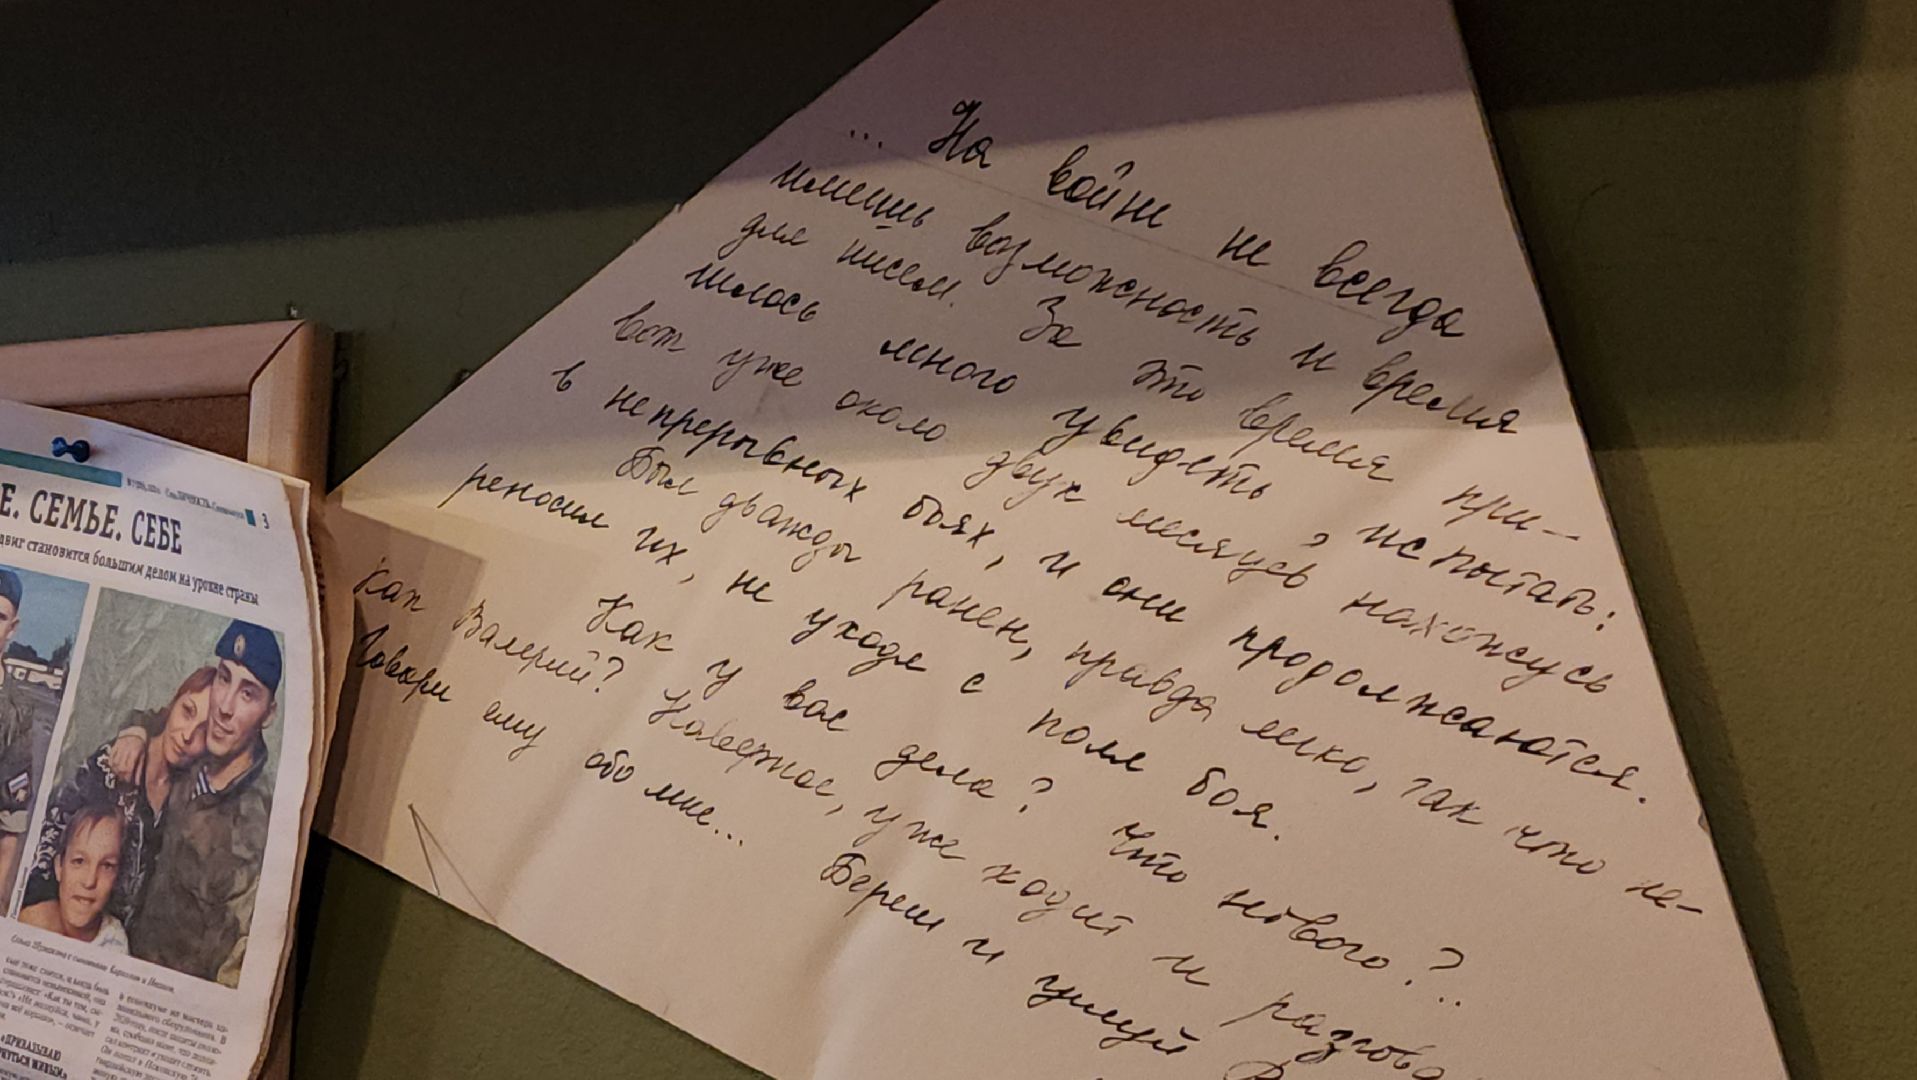 ... На войне не всегда
имеешь возможность и время
для писем. За это время при-
шлось много увидеть и испытать:
вот уже около двух месяцев нахожусь
в непрерывных боях, и они продолжаются.
Был дважды ранен, правда легко, так что пе-
реносил их, не уходя с поля боя.
Как у вас дела? Что нового?..
Как Валерий? Наверное, уже ходит и разгова
Говори ему обо мне...
Береги и целуй
3
Е. СЕМЬЕ. СЕБЕ
двиг становится большим делом на уровне страны